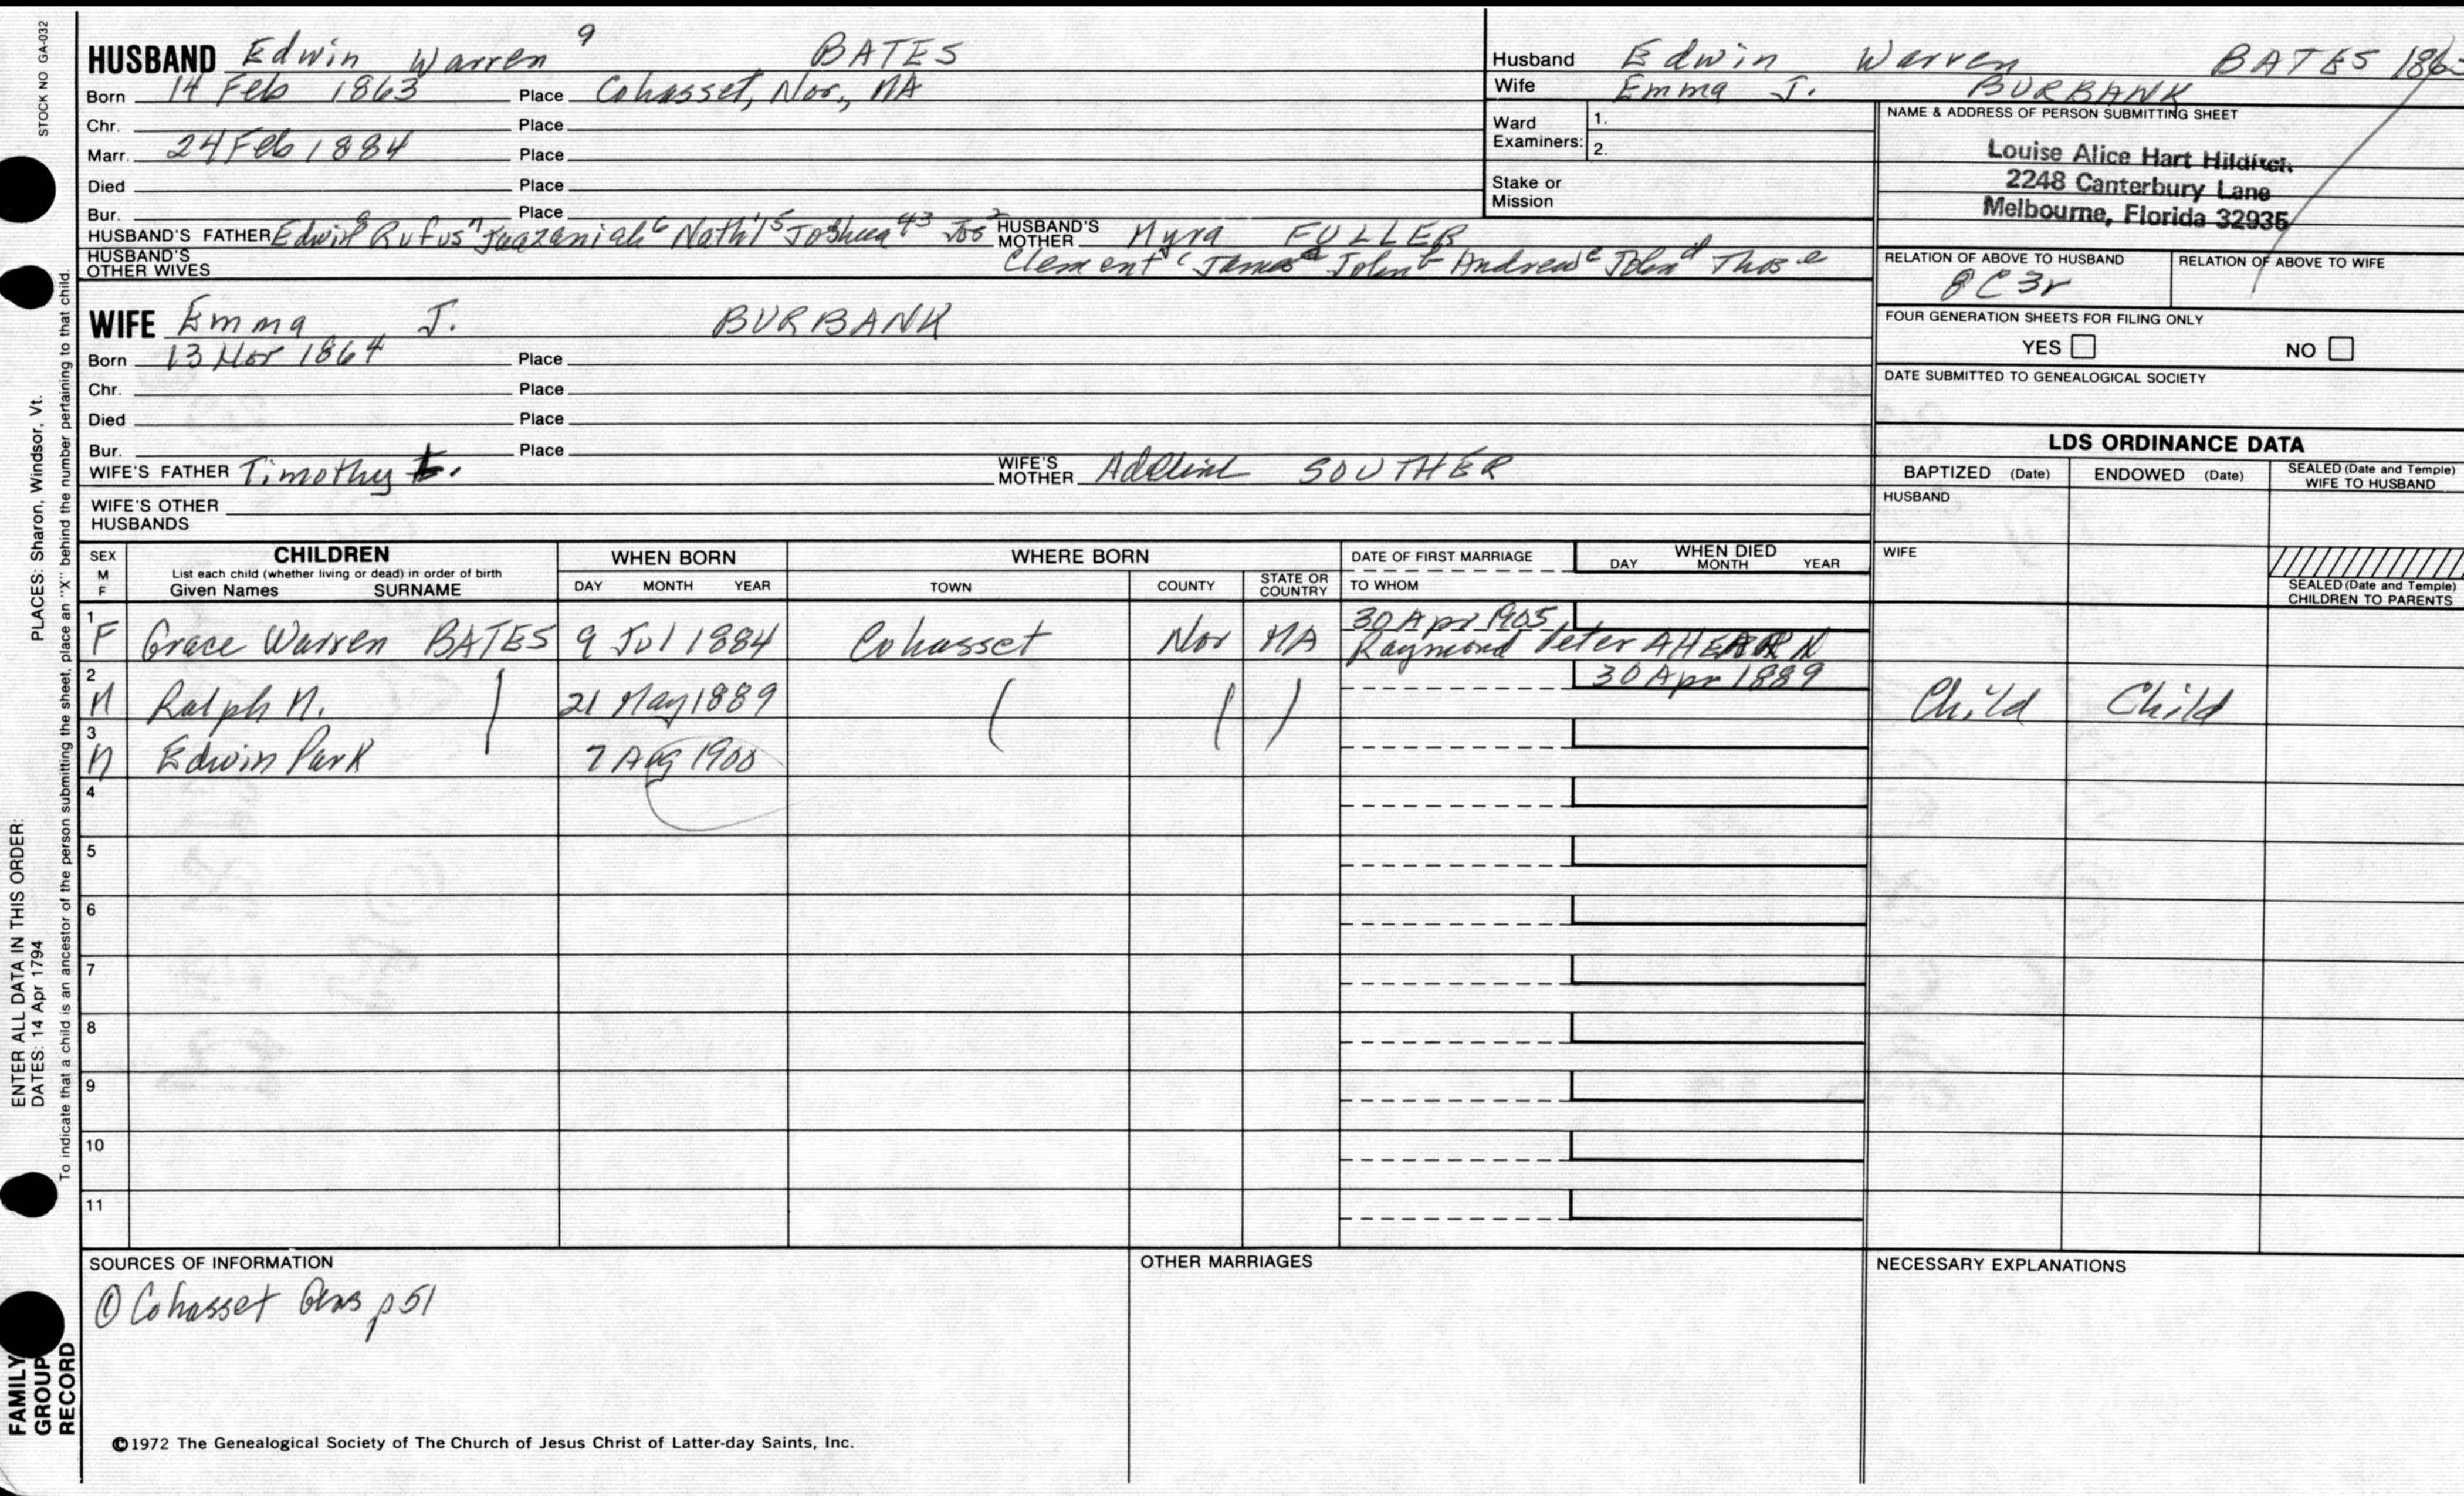 STOCK NO GA-032
HUSBAND Edwin Warren 9 BATES
Born 14 Feb 1863 Place Cohasset, Nor., MA
Chr. Place
Marr. 24 Feb 1884 Place
Died Place
Bur. Place
HUSBAND'S FATHER Edwin 8 Rufus 7 Jaazaniah 6 Nath'l 5 Joshua 43 Jos 2 HUSBAND'S MOTHER Myra FULLER
HUSBAND'S OTHER WIVES Clement James John Andrew John Thos
Husband Edwin Warren BATES 1863
Wife Emma J. BURBANK
Ward Examiners: 1.
2.
Stake or Mission
NAME & ADDRESS OF PERSON SUBMITTING SHEET
Louise Alice Hart Hilditch
2248 Canterbury Lane
Melbourne, Florida 32935
RELATION OF ABOVE TO HUSBAND RELATION OF ABOVE TO WIFE
8C3r
FOUR GENERATION SHEETS FOR FILING ONLY
YES NO
DATE SUBMITTED TO GENEALOGICAL SOCIETY
WIFE Emma J. BURBANK
Born 13 Nor 1864 Place
Chr. Place
Died Place
Bur. Place
WIFE'S FATHER Timothy WIFE'S MOTHER Adeline SOUTHER
WIFE'S OTHER HUSBANDS
LDS ORDINANCE DATA
BAPTIZED (Date) ENDOWED (Date) SEALED (Date and Temple) WIFE TO HUSBAND
HUSBAND
WIFE
SEALED (Date and Temple) CHILDREN TO PARENTS
SEX M F CHILDREN WHEN BORN WHERE BORN DATE OF FIRST MARRIAGE WHEN DIED
List each child (whether living or dead) in order of birth
Given Names SURNAME DAY MONTH YEAR TOWN COUNTY STATE OR COUNTRY TO WHOM DAY MONTH YEAR
1 30 Apr 1905
F Grace Warren BATES 9 Jul 1884 Cohasset Nor MA Raymond Peter AHEARN
2 30 Apr 1889
M Ralph N. 21 May 1889 Child Child
3
M Edwin Park 7 Aug 1900
4
5
6
7
8
9
10
11
SOURCES OF INFORMATION OTHER MARRIAGES NECESSARY EXPLANATIONS
① Cohasset Gens p 51
©1972 The Genealogical Society of The Church of Jesus Christ of Latter-day Saints, Inc.
FAMILY GROUP RECORD
ENTER ALL DATA IN THIS ORDER:
DATES: 14 Apr 1794
PLACES: Sharon, Windsor, Vt.
To indicate that a child is an ancestor of the person submitting the sheet, place an "X" behind the number pertaining to that child.